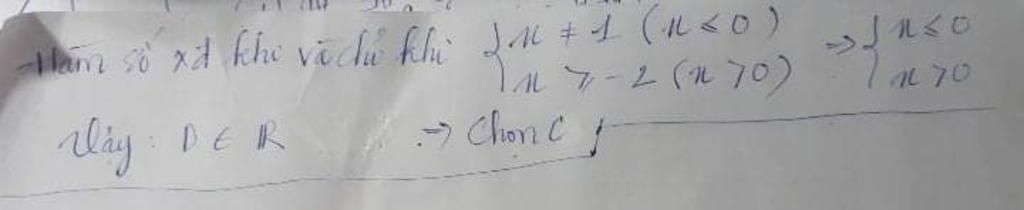 Hàm số xđ khi và chỉ khi { x ≠ 1 (x ≤ 0) ⇒ { x ≤ 0
x ≥ -2 (x > 0) x > 0
Vậy: D ∈ ℝ → Chọn C